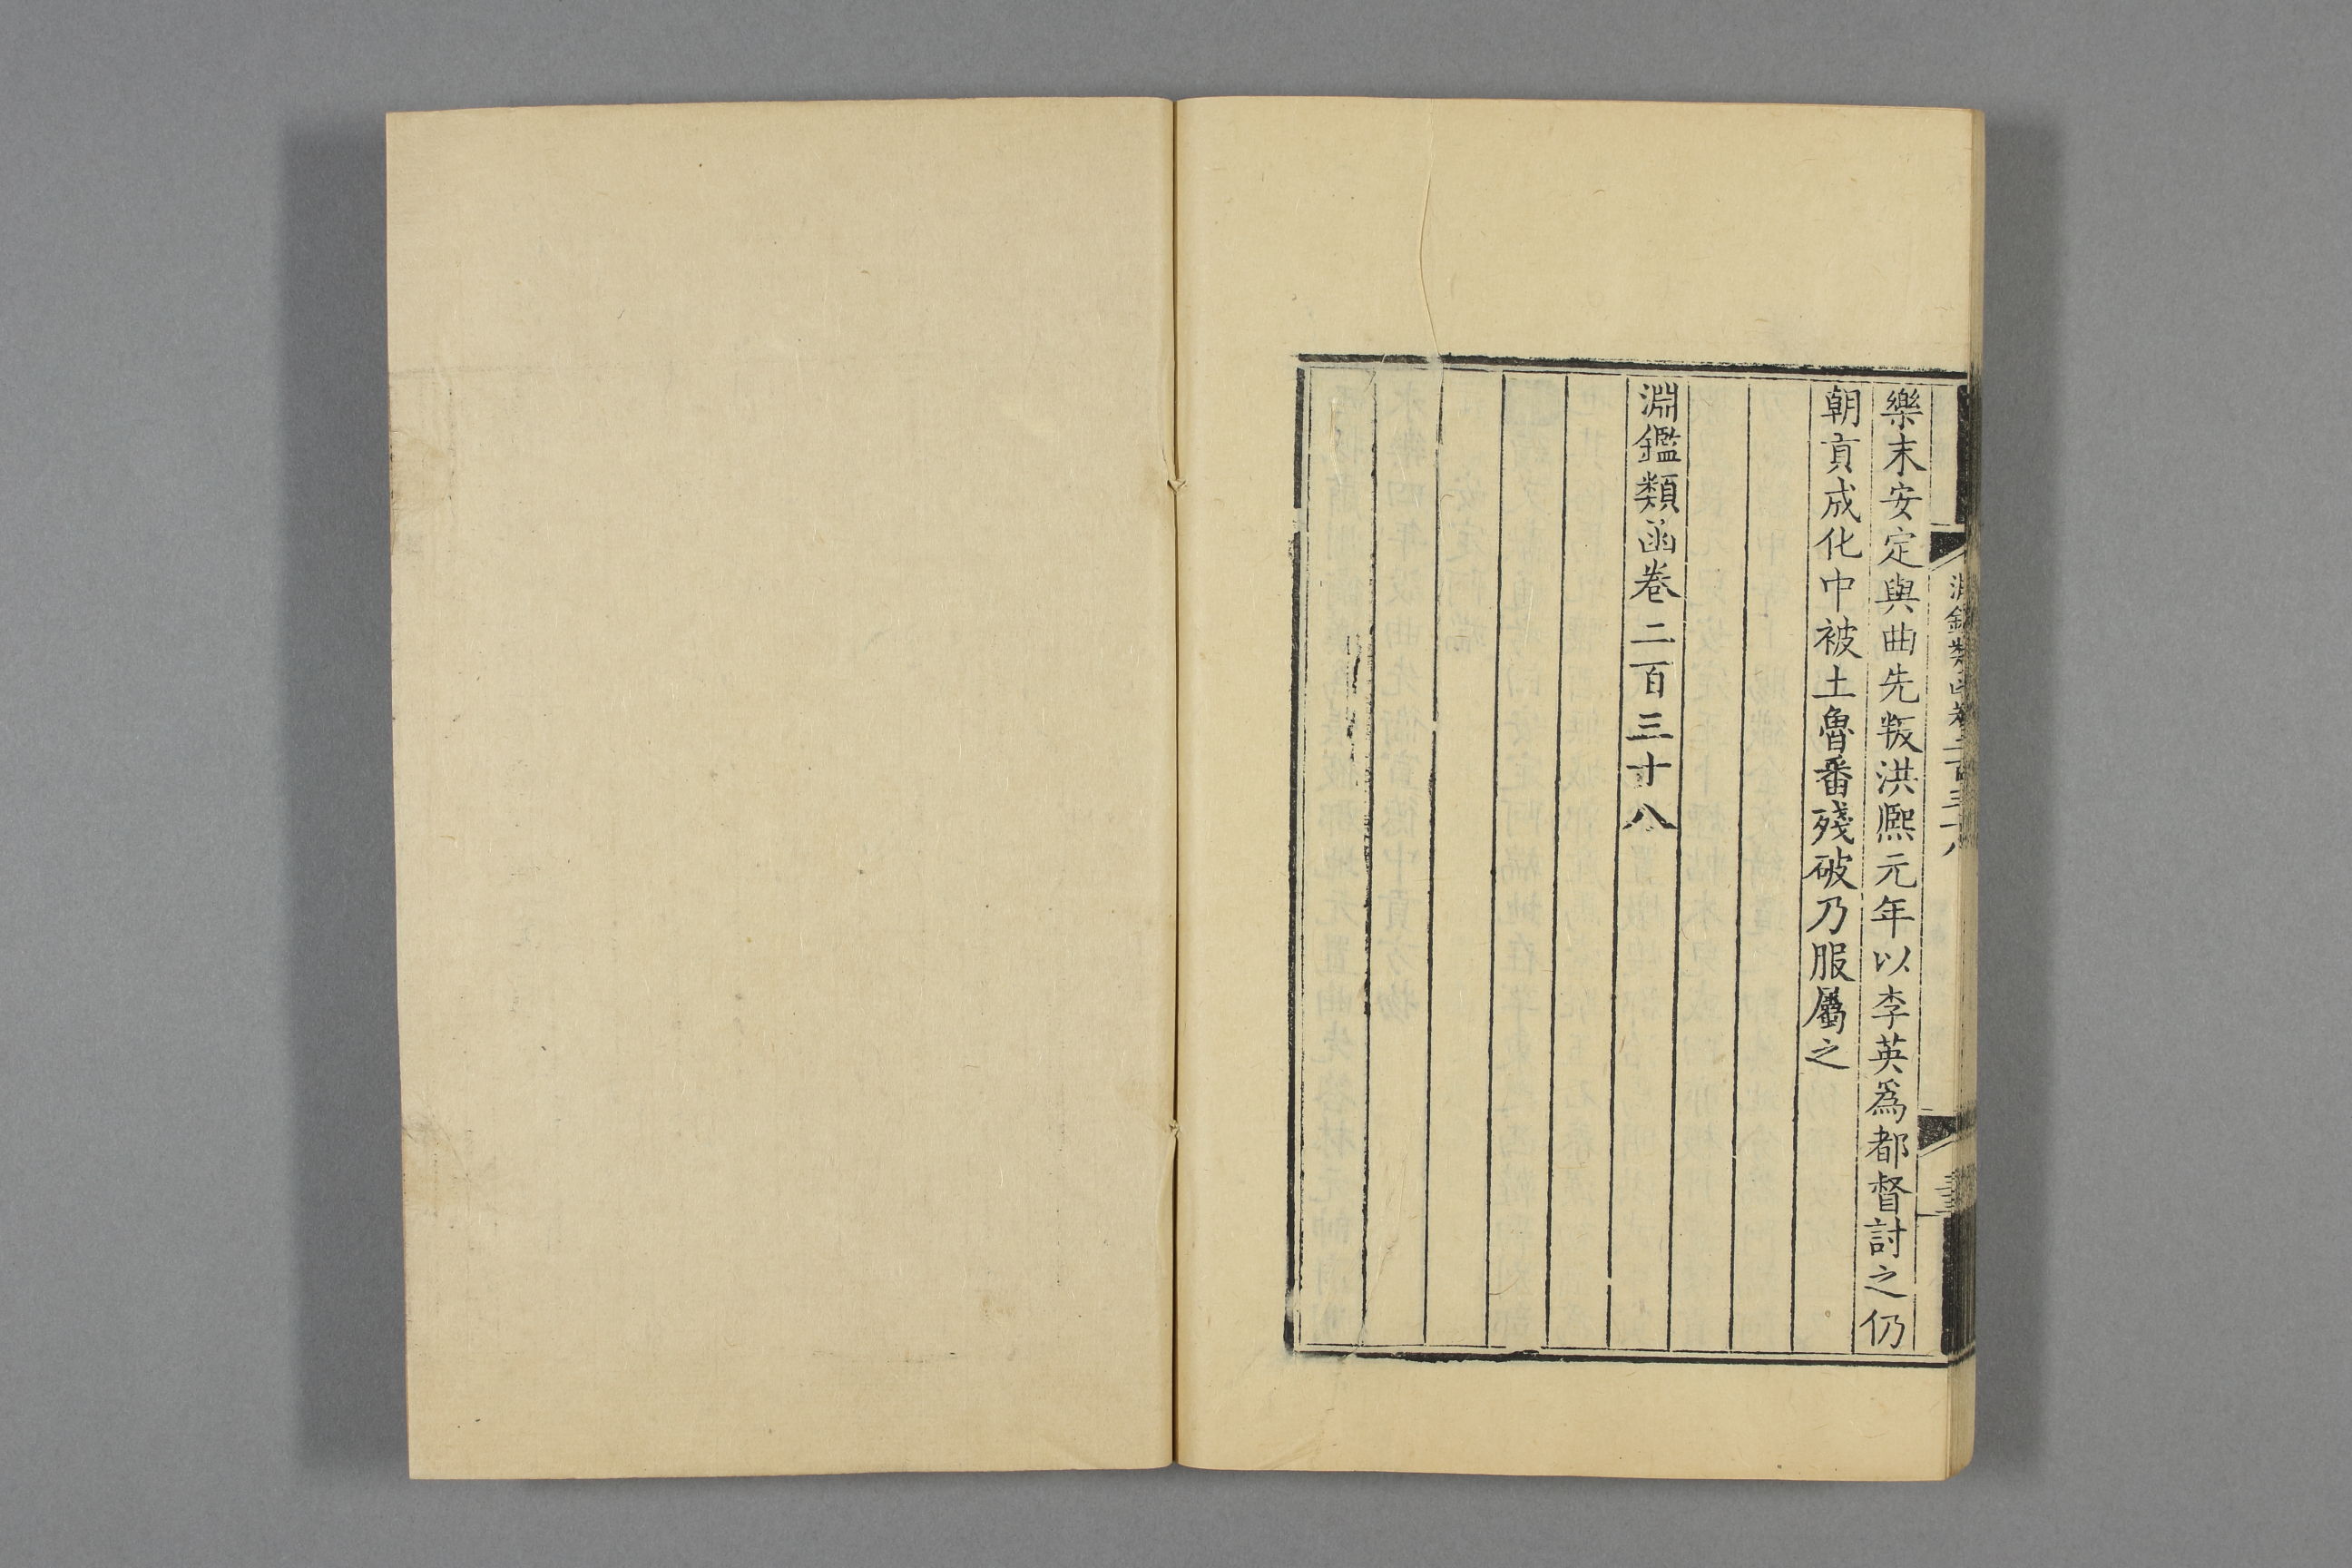 樂末安定與曲先叛洪熈元年以李英爲都督討之仍
朝貢成化中被土魯番殘破乃服屬之
淵鑑類函卷二百三十八
淵鑑類函卷二百三十八